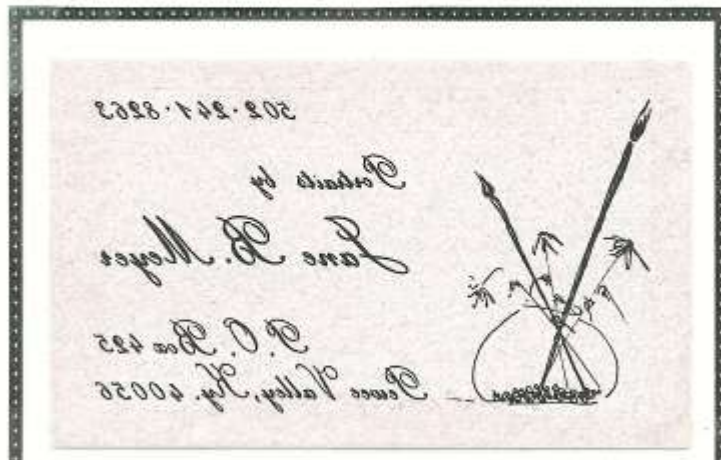 502·241·8263
Portraits by
Jane B. Meyer
P.O. Box 425
Pewee Valley, Ky. 40056